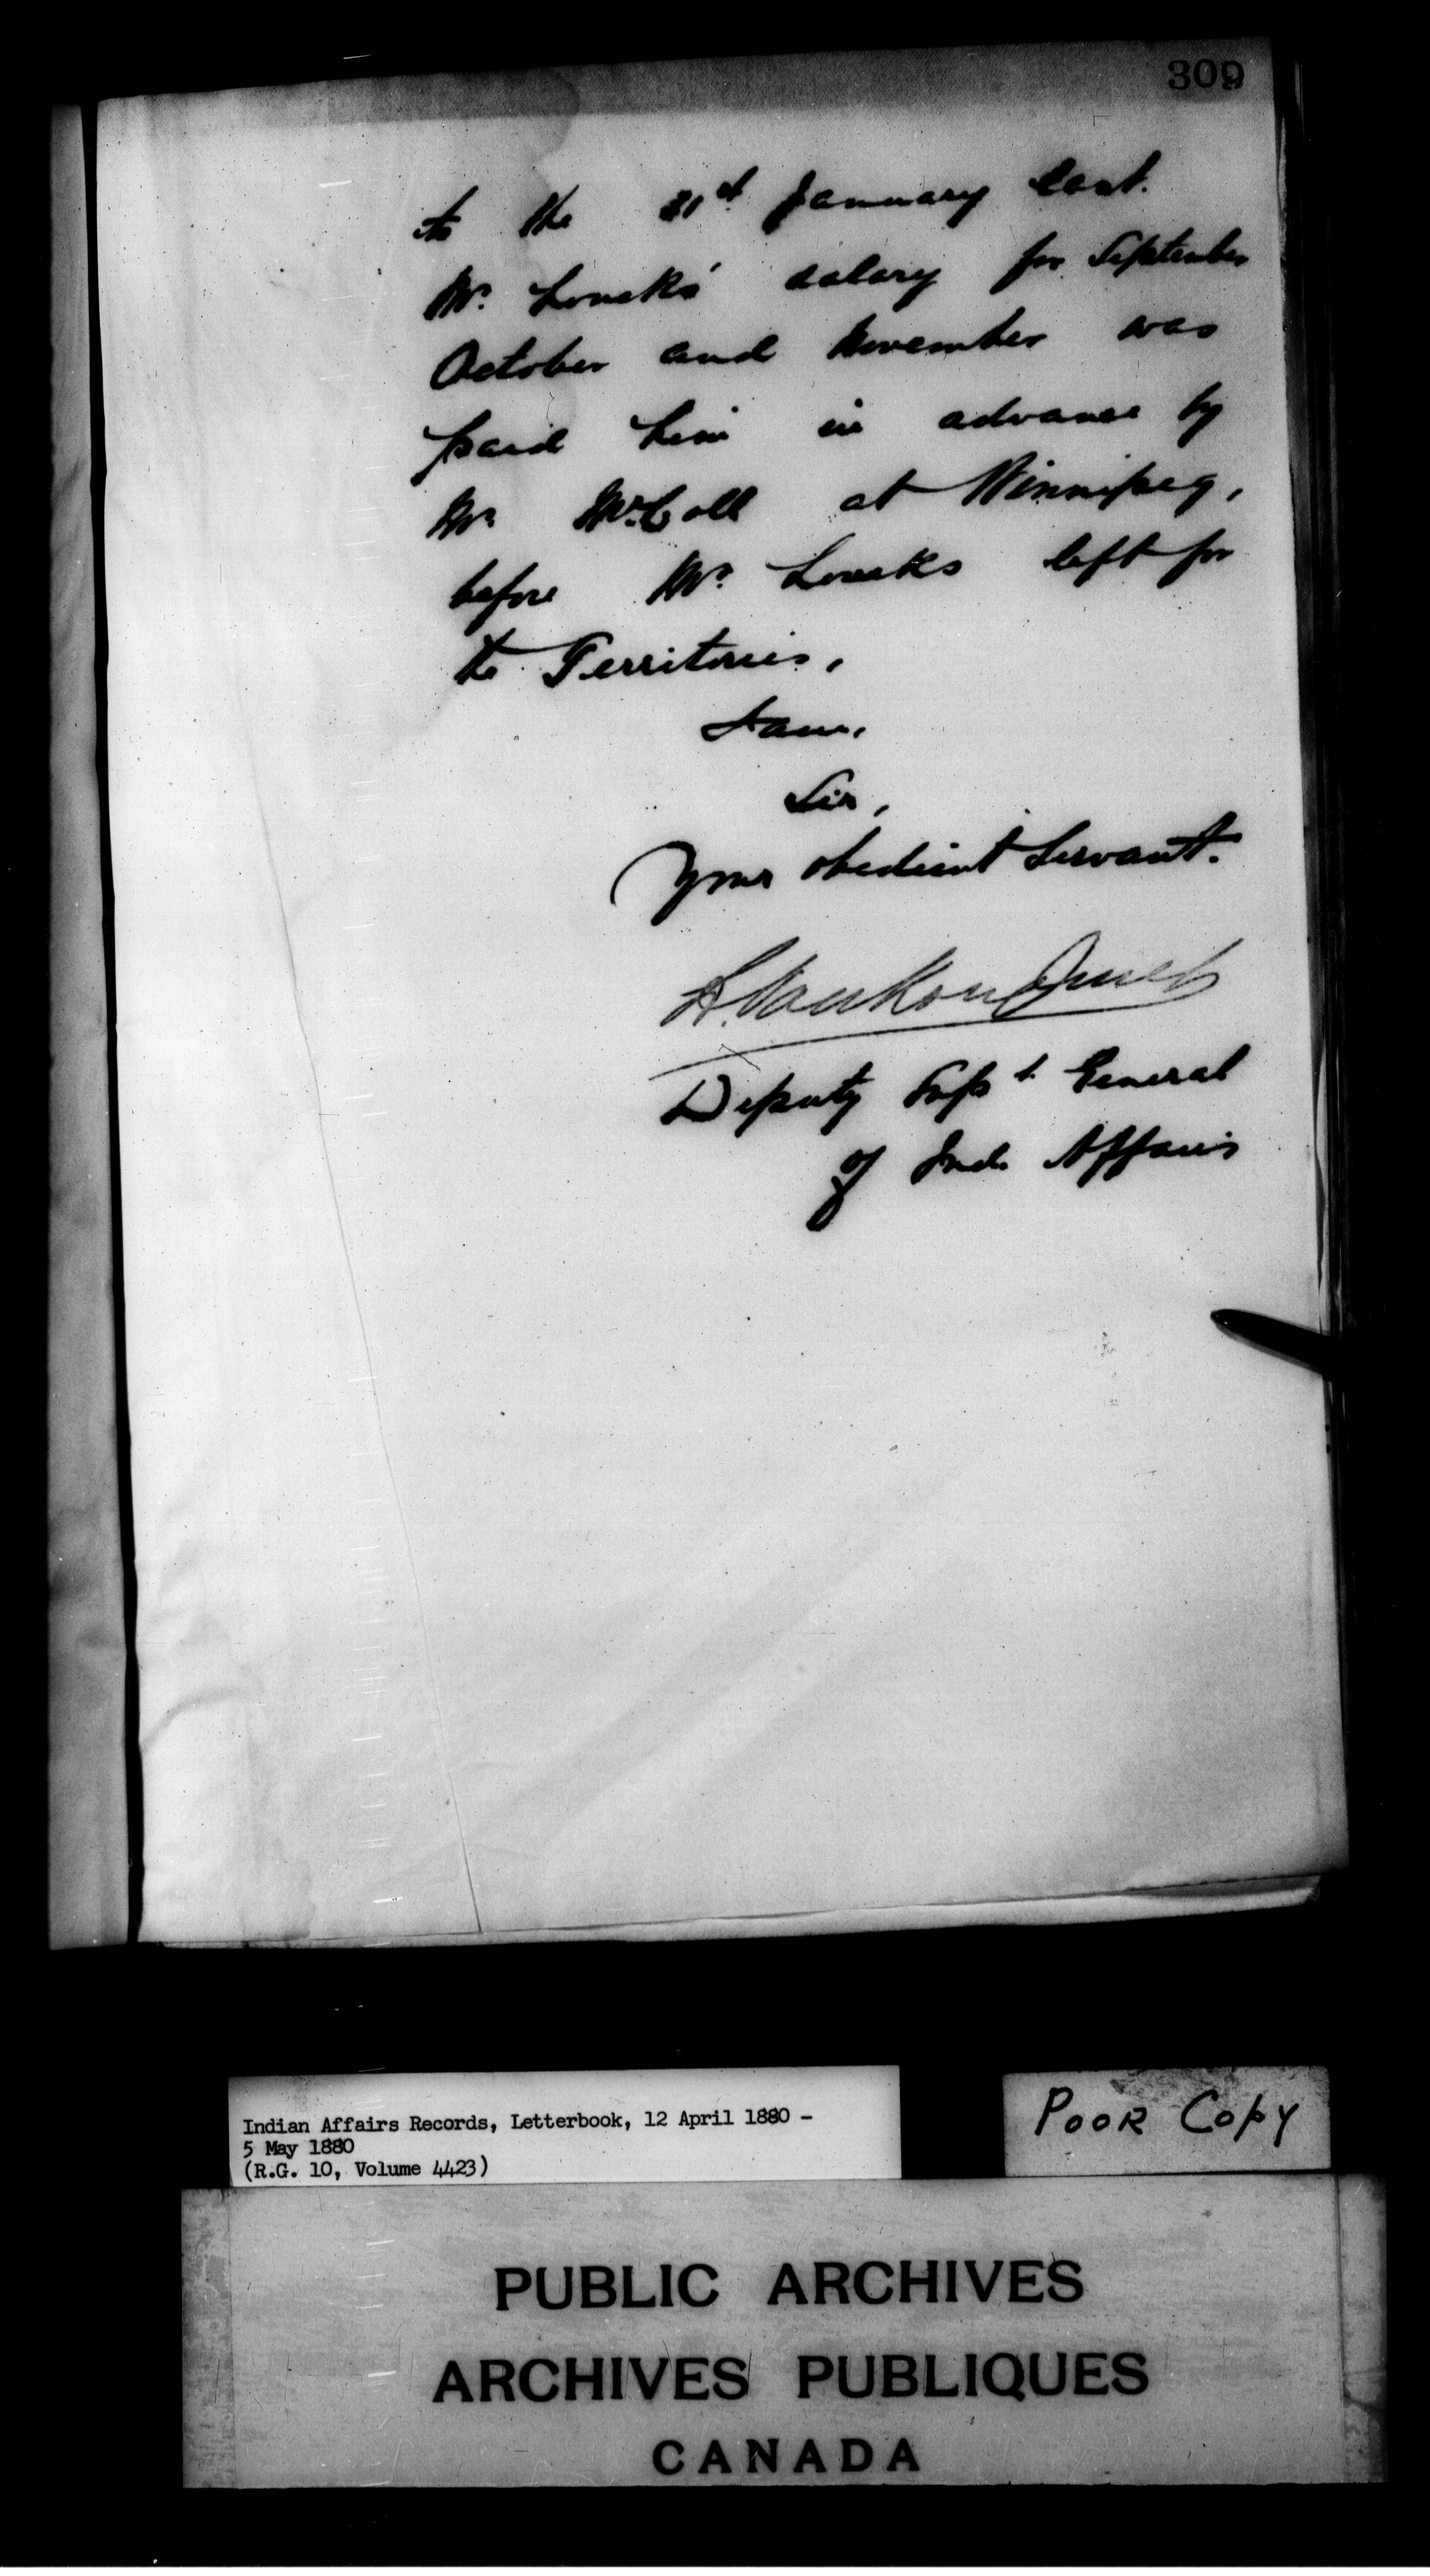 309
to the 31st January last.
Mr. Loucks' salary for September
October and November was
paid him in advance by
Mr McColl at Winnipeg,
before Mr. Loucks left for
the Territories,
I am,
Sir,
Your obedient Servant.
L. VanKoughnet
Deputy Supt. General
of Ind. Affairs
Indian Affairs Records, Letterbook, 12 April 1880 -
5 May 1880
(R.G. 10, Volume 4423)
POOR COPY
PUBLIC ARCHIVES
ARCHIVES PUBLIQUES
CANADA